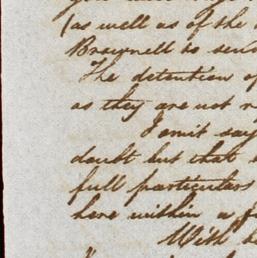 (as well as of the
Brownell to send
The detention of
as they are not
I omit say
doubt but that
full particulars
here within a
With